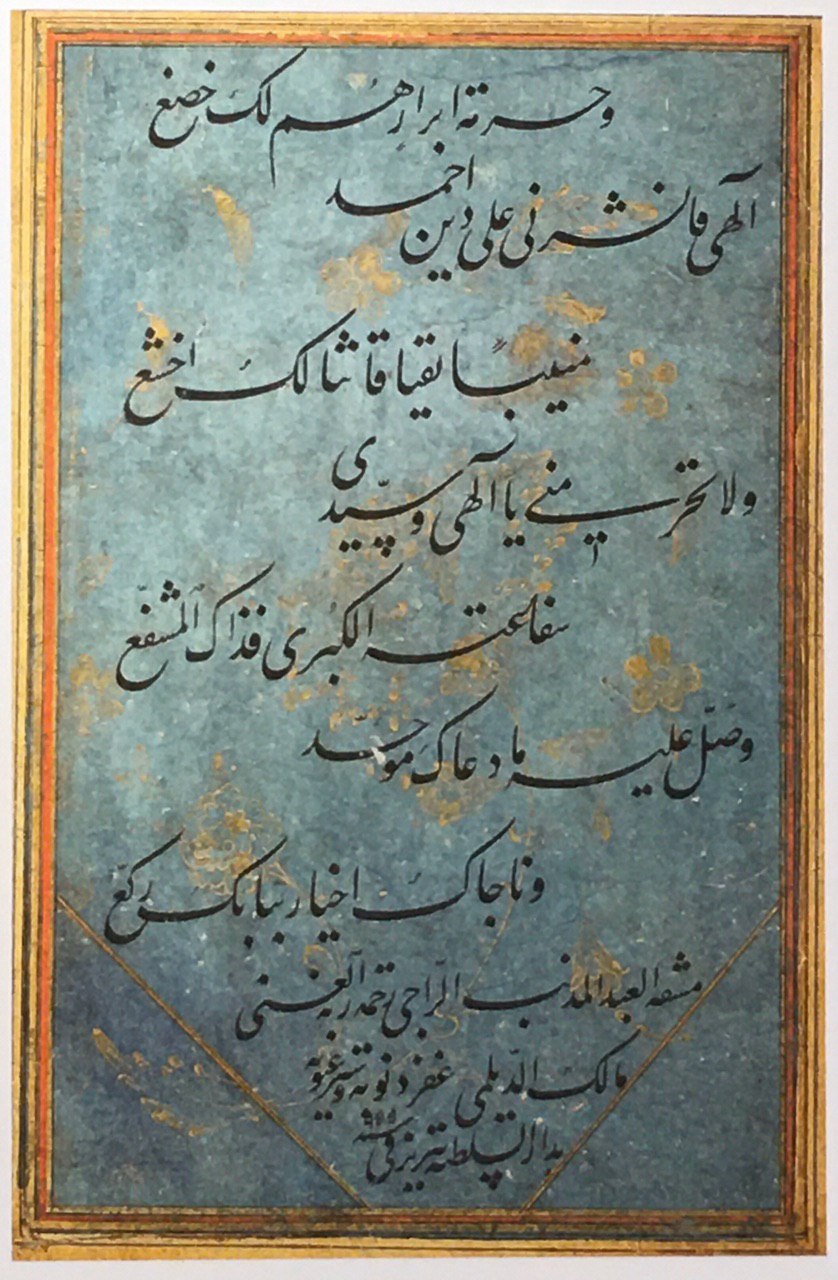 وحرمة ابرار هم لك خضع
الهی فانشرنی علی دین احمد
منیبًا تقیا قانتا لك اخشع
ولا تحرمنی یا الهی وسیّدی
شفاعته الكبری فذاك المشفّع
وصَلّ علیه ما دعاك موحّد
وناجاك اخیار ببابك ركّع
مشقه العبد المذنب الرّاجی رحمة ربه الغنی
مالك الدّیلمی غفر ذنوبه وستر عیوبه
بدار السلطنه تبریز فی سنه ٩٥٥